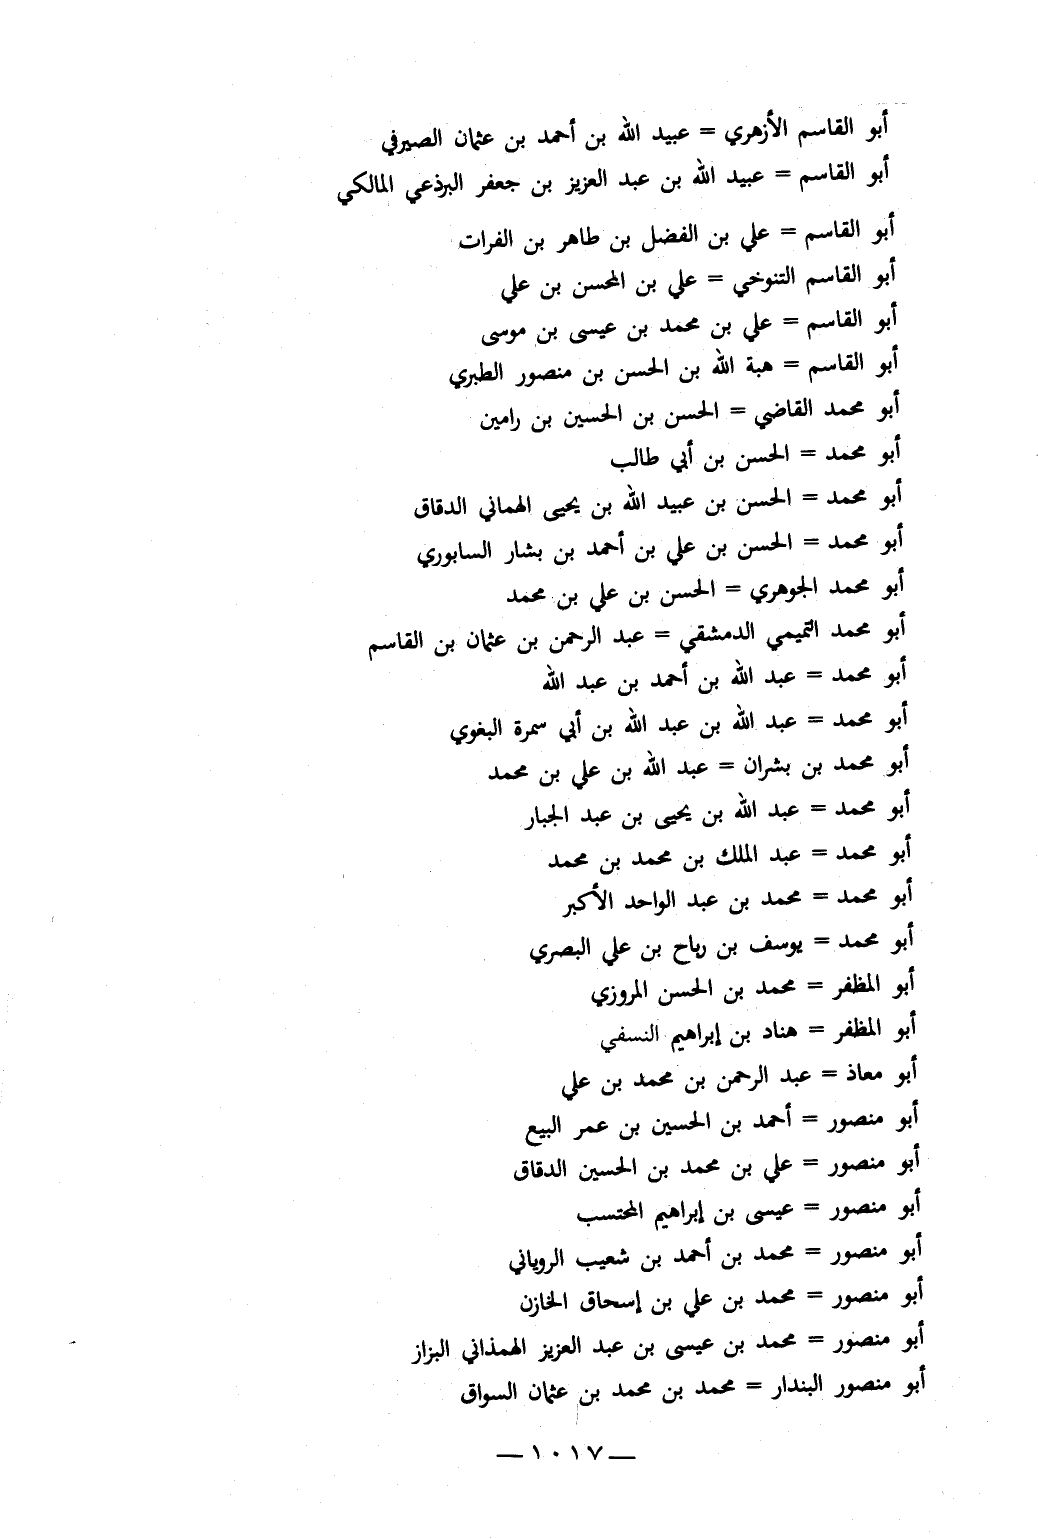 أبو القاسم الأزهري = عبيد الله بن أحمد بن عثمان الصيرفي
أبو القاسم = عبيد الله بن عبد العزيز بن جعفر البرذعي المالكي
أبو القاسم = علي بن الفضل بن طاهر بن الفرات
أبو القاسم التنوخي = علي بن المحسن بن علي
أبو القاسم = علي بن محمد بن عيسى بن موسى
أبو القاسم = هبة الله بن الحسن بن منصور الطبري
أبو محمد القاضي = الحسن بن الحسين بن رامين
أبو محمد = الحسن بن أبي طالب
أبو محمد = الحسن بن عبيد الله بن يحيى الهماني الدقاق
أبو محمد = الحسن بن علي بن أحمد بن بشار السابوري
أبو محمد الجوهري = الحسن بن علي بن محمد
أبو محمد التميمي الدمشقي = عبد الرحمن بن عثمان بن القاسم
أبو محمد = عبد الله بن أحمد بن عبد الله
أبو محمد = عبد الله بن عبد الله بن أبي سمرة البغوي
أبو محمد بن بشران = عبد الله بن علي بن محمد
أبو محمد = عبد الله بن يحيى بن عبد الجبار
أبو محمد = عبد الملك بن محمد بن محمد
أبو محمد = محمد بن عبد الواحد الأكبر
أبو محمد = يوسف بن رباح بن علي البصري
أبو المظفر = محمد بن الحسن المروزي
أبو المظفر = هناد بن إبراهيم النسفي
أبو معاذ = عبد الرحمن بن محمد بن علي
أبو منصور = أحمد بن الحسين بن عمر البيع
أبو منصور = علي بن محمد بن الحسين الدقاق
أبو منصور = عيسى بن إبراهيم المحتسب
أبو منصور = محمد بن أحمد بن شعيب الروياني
أبو منصور = محمد بن علي بن إسحاق الخازن
أبو منصور = محمد بن عيسى بن عبد العزيز الهمذاني البزاز
أبو منصور البندار = محمد بن محمد بن عثمان السواق
— ١٠١٧ —